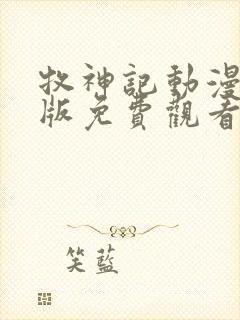 牧神記動漫
版免費觀看
笑藍